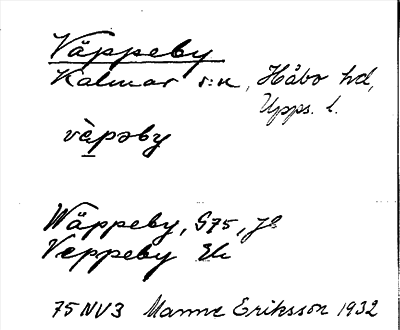 Väppeby
Kalmar s:n, Håbo hd,
Upps. l.
vàpəby
Wäppeby, G75, JB
Veppeby Ek
75 NV3 Manne Eriksson 1932